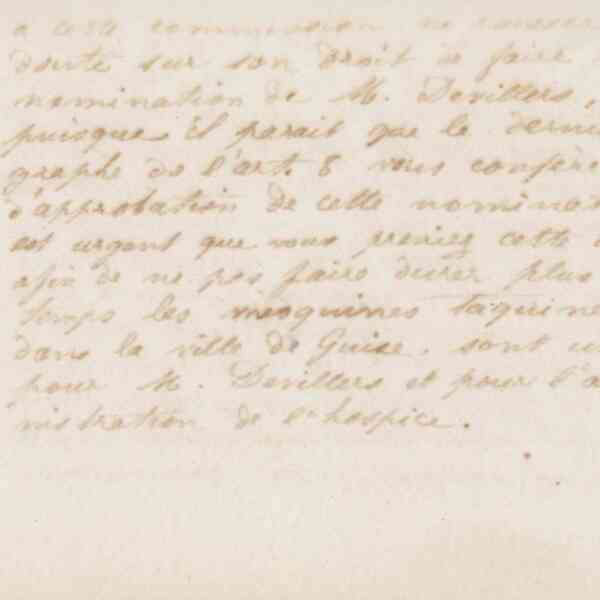 a cette commission ne
doute sur son droit à faire
nomination de M. Devillers,
puisque il parait que le derni
graphe de l'art. 8 vous confère
d'approbation de cette nominat
est urgent que vous preniez cette
afin de ne pas faire durer plus
temps les mesquines taquine
dans la ville de Guise, sont u
pour M. Devillers et pour l'a
nistration de l'hospice.